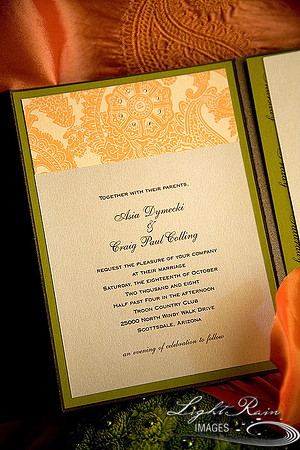 Together with their parents,
Asia Dymecki
&
Craig Paul Colling
request the pleasure of your company
at their marriage
Saturday, the eighteenth of October
Two thousand and eight
Half past Four in the afternoon
Troon Country Club
25000 North Windy Walk Drive
Scottsdale, Arizona
an evening of celebration to follow
Light Rain
IMAGES